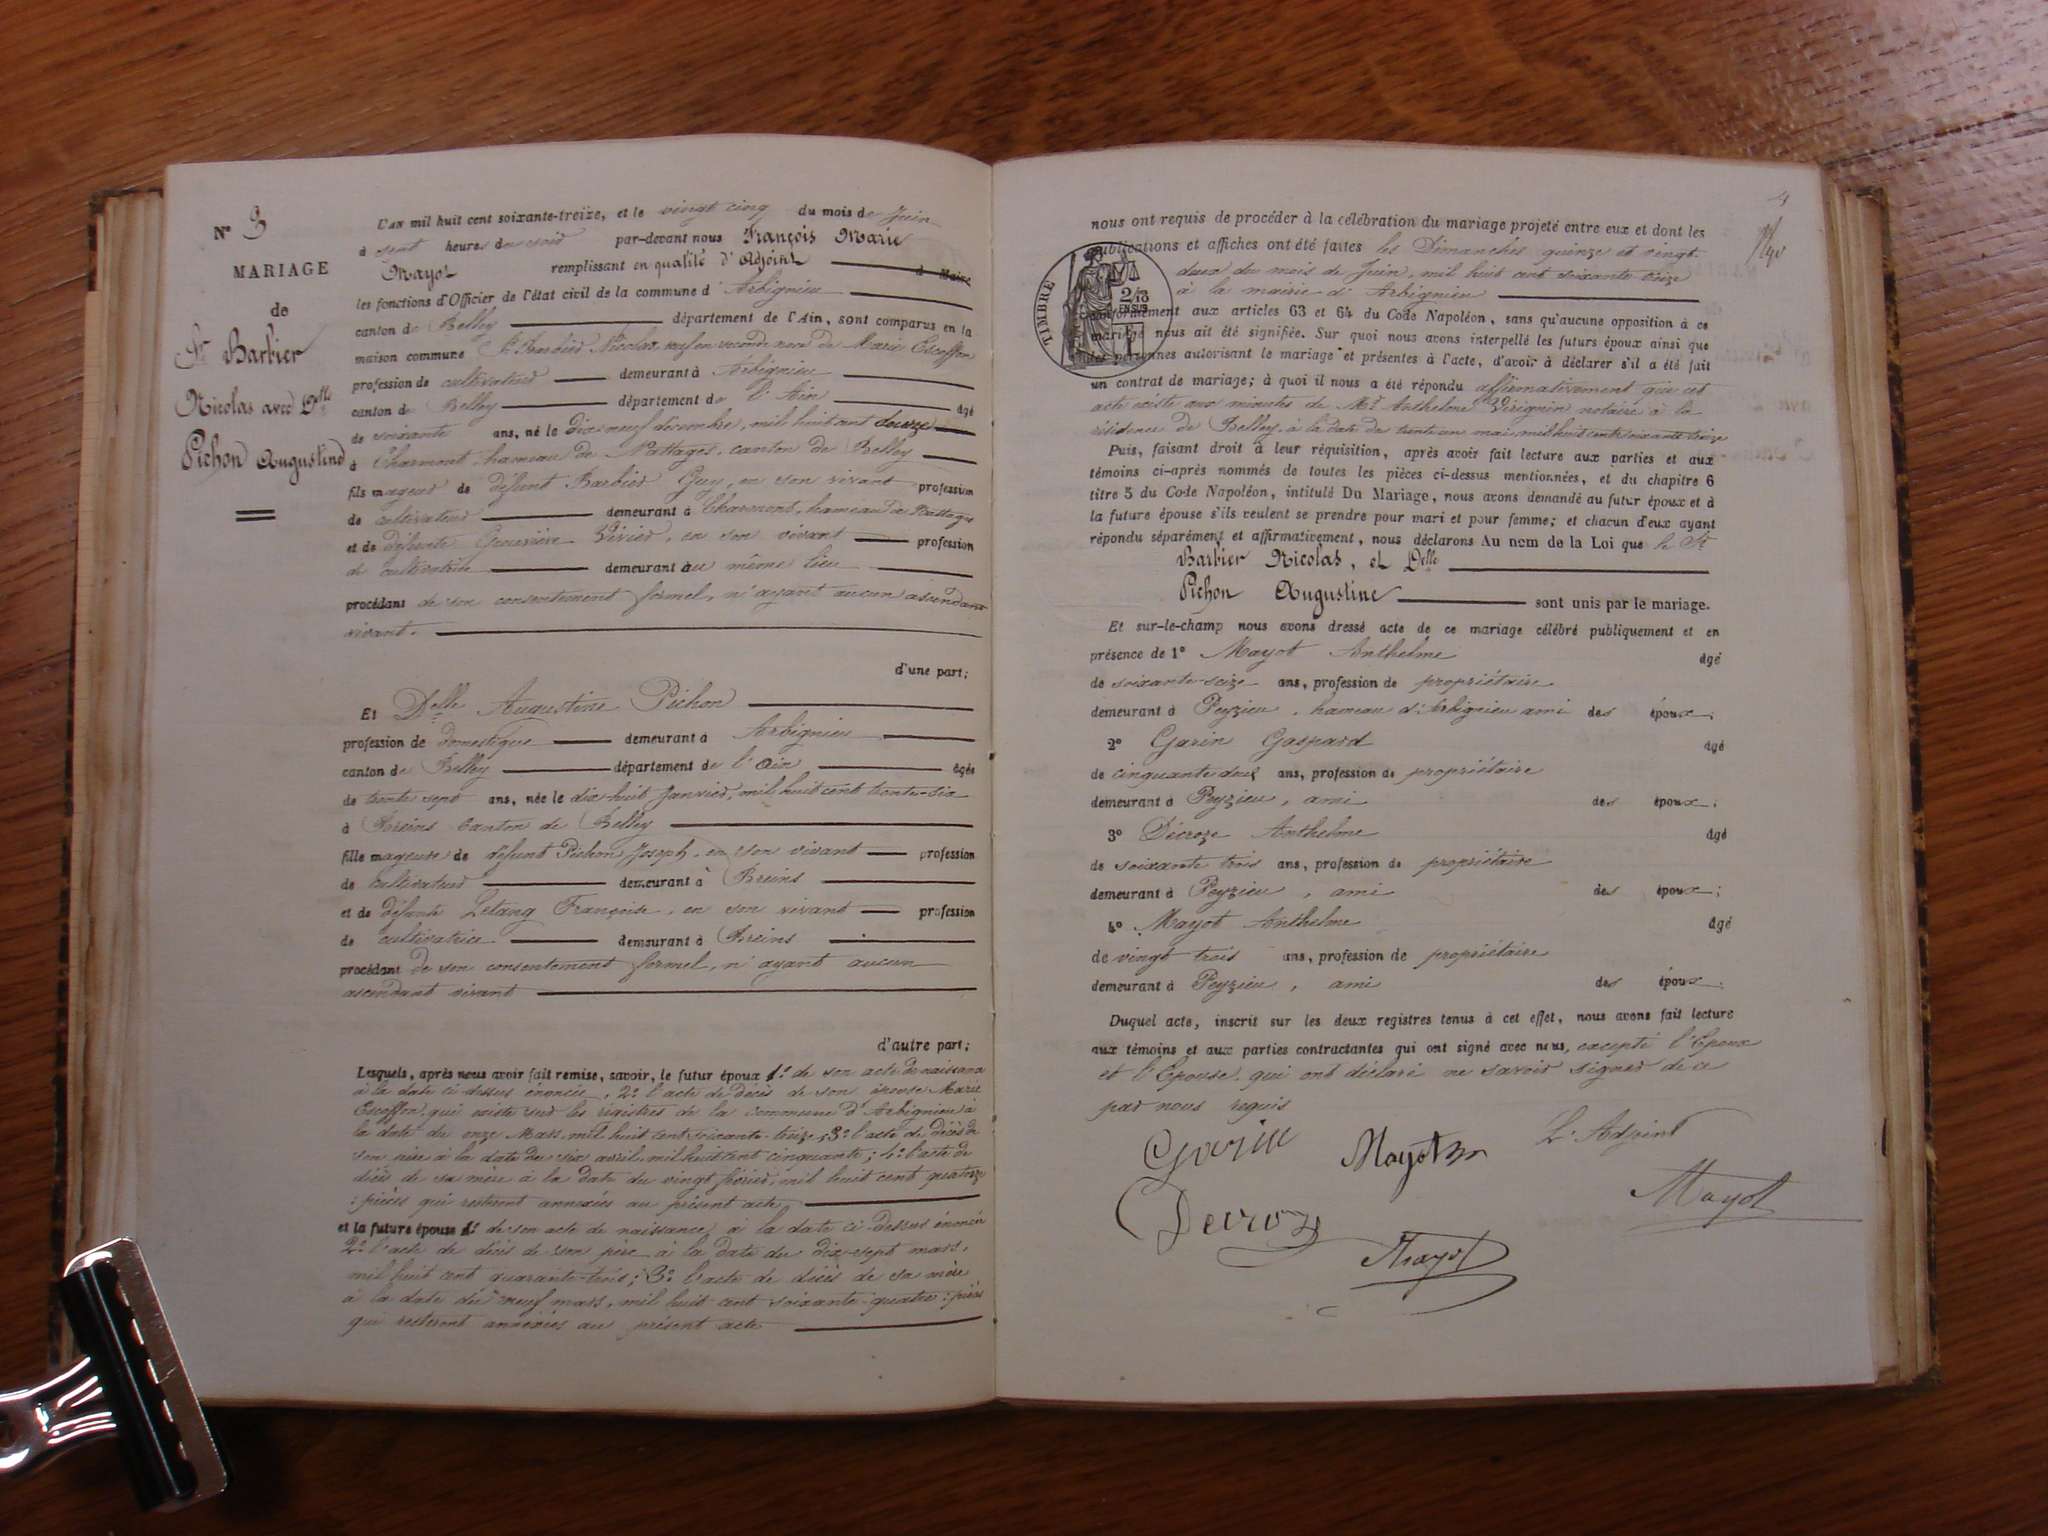 N° 3
MARIAGE
de
Sr Barbier
Nicolas avec Delle
Pichon Augustine
L'AN mil huit cent soixante-treize, et le vingt cinq du mois de Juin
à sept heures du soir par-devant nous François Marie
Mayot remplissant en qualité d'Adjoint d Maire
les fonctions d'Officier de l'état civil de la commune d'Arbignieu
canton de Belley département de l'Ain, sont comparus en la
maison commune Sr Barbier Nicolas, veuf en seconde noce de Marie Escoffon
profession de cultivateur demeurant à Arbignieu
canton de Belley département de l'Ain âgé
de soixante ans, né le dix neuf décembre, mil huit cent douze
à Charmont, hameau de Nattages, canton de Belley
fils majeur de défunt Barbier Guy, en son vivant profession
de cultivateur demeurant à Charmont, hameau de Nattages
et de défunte Geneviève Vivier, en son vivant profession
de cultivatrice demeurant au même lieu
procédant de son consentement formel, n'ayant aucun ascendant
vivant.
d'une part;
Et Delle Augustine Pichon
profession de domestique demeurant à Arbignieu
canton de Belley département de l'Ain âgée
de trente sept ans, née le dix-huit Janvier, mil huit cent trente-six
à Breins Canton de Belley
fille majeure de défunt Pichon Joseph, en son vivant profession
de cultivateur demeurant à Breins
et de défunte Letang Françoise, en son vivant profession
de cultivatrice demeurant à Breins
procédant de son consentement formel, n'ayant aucun
ascendant vivant
d'autre part;
Lesquels, après nous avoir fait remise, savoir, le futur époux 1° de son acte de naissance
à la date ci-dessus énoncée, 2° l'acte de décès de son épouse Marie
Escoffon, qui existe sur les registres de la commune d'Arbignieu à
la date du onze Mars, mil huit cent soixante-treize, 3° l'acte de décès de
son père à la date du six avril, mil huit cent cinquante; 4° l'acte de
décès de sa mère à la date du vingt février, mil huit cent quatorze
: pièces qui resteront annexées au présent acte
et la future épouse 1° de son acte de naissance à la date ci-dessus énoncée
2° l'acte de décès de son père à la date du dix-sept mars,
mil huit cent quarante-trois; 3° l'acte de décès de sa mère
à la date du neuf mars, mil huit cent soixante-quatre : pièces
qui resteront annexées au présent acte
4
nous ont requis de procéder à la célébration du mariage projeté entre eux et dont les
publications et affiches ont été faites les Dimanches quinze et vingt-
deux du mois de Juin, mil huit cent soixante treize
à la mairie d'Arbignieu
TIMBRE
2/10
EN SUS
conformément aux articles 63 et 64 du Code Napoléon, sans qu'aucune opposition à ce
mariage nous ait été signifiée. Sur quoi nous avons interpellé les futurs époux ainsi que
les personnes autorisant le mariage et présentes à l'acte, d'avoir à déclarer s'il a été fait
un contrat de mariage; à quoi il nous a été répondu affirmativement que cet
acte existe aux minutes de Me Anthelme Virignin notaire à la
résidence de Belley, à la date du trente un mai, mil huit cent soixante treize
Puis, faisant droit à leur réquisition, après avoir fait lecture aux parties et aux
témoins ci-après nommés de toutes les pièces ci-dessus mentionnées, et du chapitre 6
titre 5 du Code Napoléon, intitulé Du Mariage, nous avons demandé au futur époux et à
la future épouse s'ils veulent se prendre pour mari et pour femme; et chacun d'eux ayant
répondu séparément et affirmativement, nous déclarons Au nom de la Loi que le Sr
Barbier Nicolas, et Delle
Pichon Augustine sont unis par le mariage.
Et sur-le-champ nous avons dressé acte de ce mariage célébré publiquement et en
présence de 1° Mayot Anthelme âgé
de soixante-seize ans, profession de propriétaire
demeurant à Peyzieu, hameau d'Arbignieu ami des époux;
2° Garin Gaspard âgé
de cinquante deux ans, profession de propriétaire
demeurant à Peyzieu, ami des époux;
3° Décroze Anthelme âgé
de soixante trois ans, profession de propriétaire
demeurant à Peyzieu, ami des époux;
4° Mayot Anthelme âgé
de vingt trois ans, profession de propriétaire
demeurant à Peyzieu, ami des époux.
Duquel acte, inscrit sur les deux registres tenus à cet effet, nous avons fait lecture
aux témoins et aux parties contractantes qui ont signé avec nous, excepté l'Epoux
et l'Epouse, qui ont déclaré ne savoir signer de ce
par nous requis
Garin Mayot L'Adjoint
Decroz Mayot Mayot